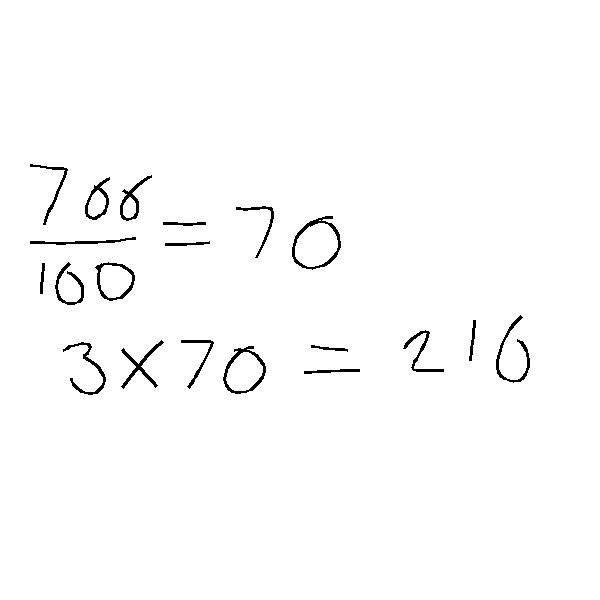 700/100 = 70
3 x 70 = 210